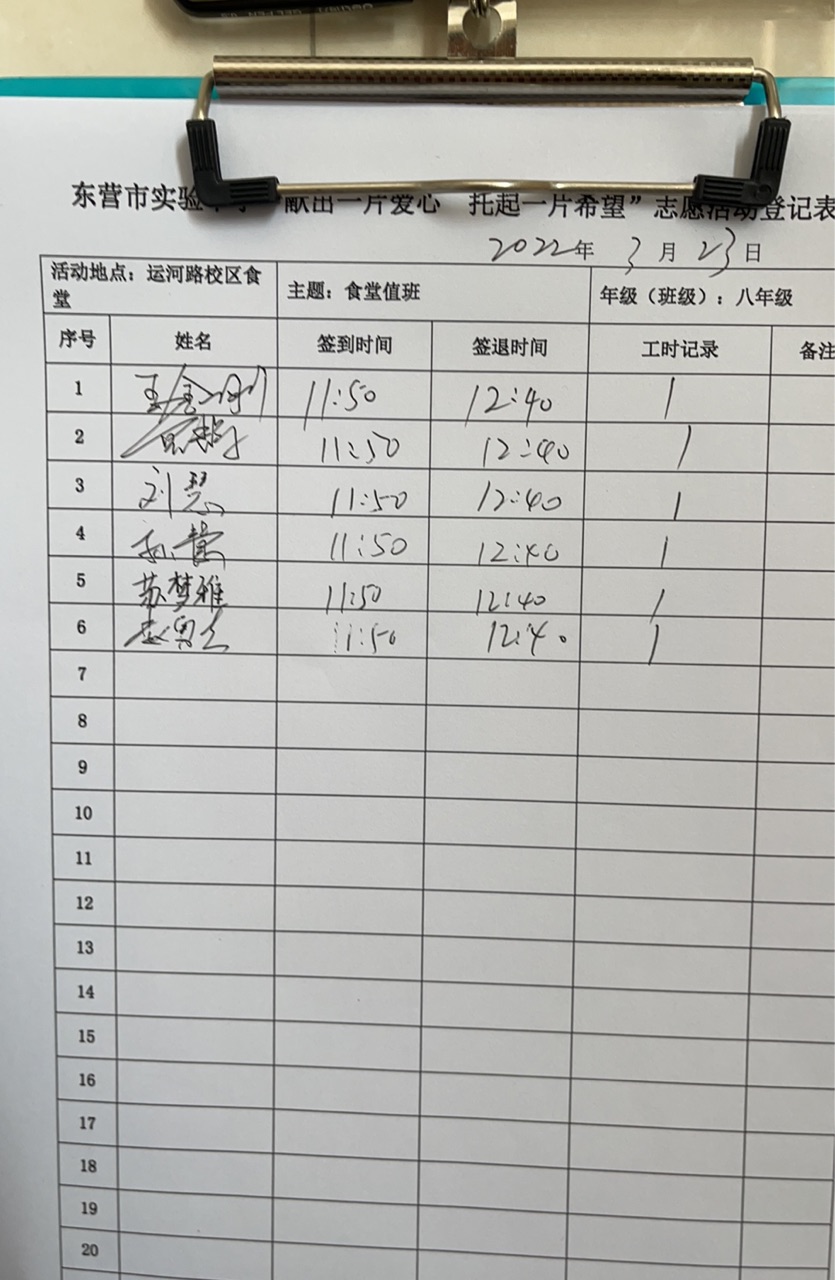 东营市实验中学“献出一片爱心 托起一片希望”志愿活动登记表
2022年 3月 23日
活动地点：运河路校区食堂 主题：食堂值班 年级（班级）：八年级
序号 姓名 签到时间 签退时间 工时记录 备注
1 王金刚 11:50 12:40 1
2 11:50 12:40 1
3 刘慧 11:50 12:40 1
4 孙 11:50 12:40 1
5 苏梦雅 11:50 12:40 1
6 11:50 12:40 1
7
8
9
10
11
12
13
14
15
16
17
18
19
20